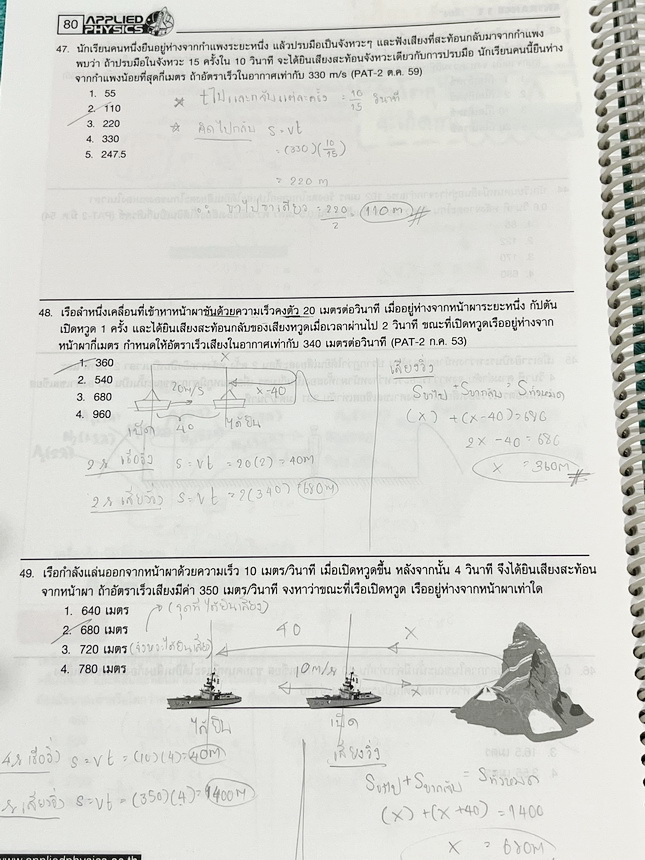 80 APPLIED PHYSICS
47. นักเรียนคนหนึ่งยืนอยู่ห่างจากกำแพงระยะหนึ่ง แล้วปรบมือเป็นจังหวะๆ และฟังเสียงที่สะท้อนกลับมาจากกำแพง
พบว่า ถ้าปรบมือในจังหวะ 15 ครั้งใน 10 วินาที จะได้ยินเสียงสะท้อนจังหวะเดียวกับการปรบมือ นักเรียนคนนี้ยืนห่าง
จากกำแพงน้อยที่สุดกี่เมตร ถ้าอัตราเร็วในอากาศเท่ากับ 330 m/s (PAT-2 ต.ค. 59)
1. 55
2. 110
3. 220
4. 330
5. 247.5
tไปและกลับแต่ละครั้ง = 10/15 วินาที
คิดไปกลับ s = vt
= (330)(10/15)
= 220 m
∴ ขาไปขาเดียว = 220/2 = 110 m
48. เรือลำหนึ่งเคลื่อนที่เข้าหาหน้าผาชันด้วยความเร็วคงตัว 20 เมตรต่อวินาที เมื่ออยู่ห่างจากหน้าผาระยะหนึ่ง กัปตัน
เปิดหวูด 1 ครั้ง และได้ยินเสียงสะท้อนกลับของเสียงหวูดเมื่อเวลาผ่านไป 2 วินาที ขณะที่เปิดหวูดเรืออยู่ห่างจาก
หน้าผากี่เมตร กำหนดให้อัตราเร็วเสียงในอากาศเท่ากับ 340 เมตรต่อวินาที (PAT-2 ก.ค. 53)
1. 360
2. 540
3. 680
4. 960
x
20m/s
x-40
40
เปิด
ได้ยิน
2s เรือวิ่ง s = vt = 20(2) = 40m
2s เสียงวิ่ง s = vt = 2(340) 680m
เสียงวิ่ง
Sขาไป + Sขากลับ = Sทั้งหมด
(x) + (x-40) = 680
2x - 40 = 680
x = 360m
49. เรือกำลังแล่นออกจากหน้าผาด้วยความเร็ว 10 เมตร/วินาที เมื่อเปิดหวูดขึ้น หลังจากนั้น 4 วินาที จึงได้ยินเสียงสะท้อน
จากหน้าผา ถ้าอัตราเร็วเสียงมีค่า 350 เมตร/วินาที จงหาว่าขณะที่เรือเปิดหวูด เรืออยู่ห่างจากหน้าผาเท่าใด
1. 640 เมตร
2. 680 เมตร
3. 720 เมตร
4. 780 เมตร
40
x
10m/s
x
ได้ยิน
เปิด
4s เรือวิ่ง s = vt = (10)(4) = 40m
เสียงวิ่ง s = vt = (350)(4) = 1400m
เสียงวิ่ง
Sขาไป + Sขากลับ = Sทั้งหมด
(x) + (x+40) = 1400
x = 680m